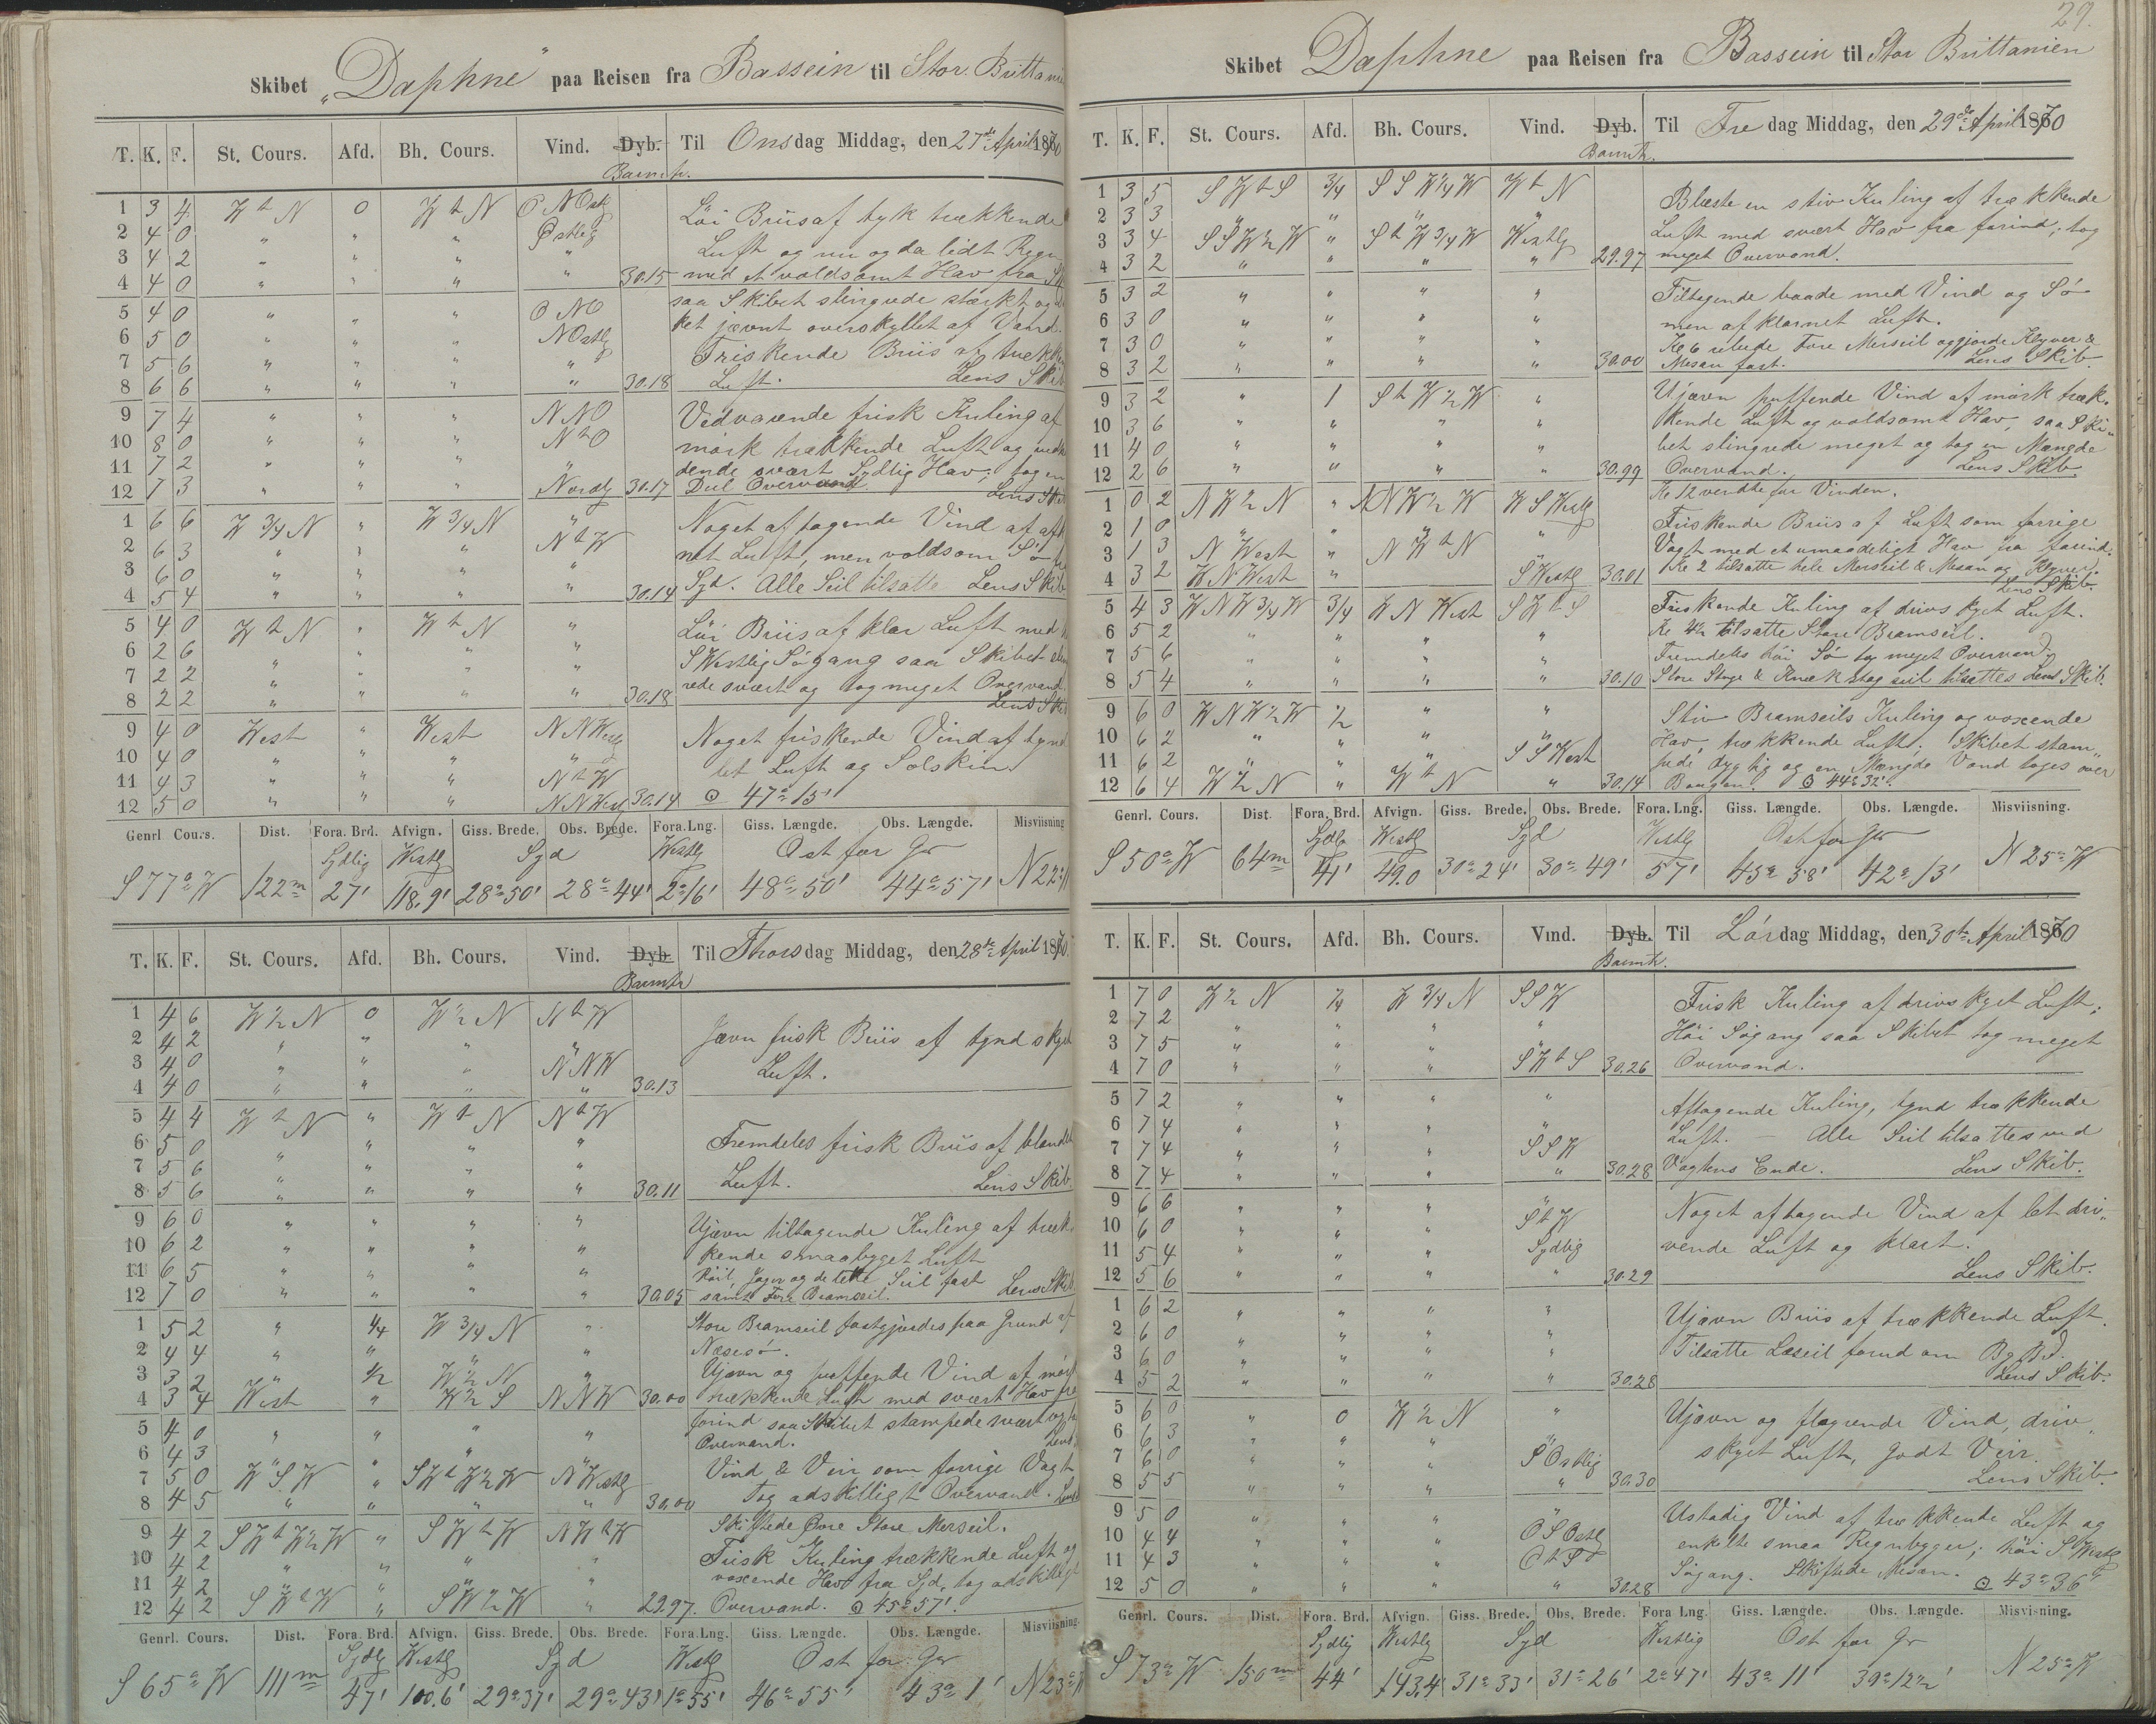 Skibet "Daphne" paa Reisen fra Bassein til Stor. Brittani
T. K. F. St. Cours. Afd. Bh. Cours. Vind. Dyb. Til Onsdag Middag, den 27de April 1870
Barmtr.
1 3 4 W t N 0 W t N O N Ostlg Löi Briis af tyk trækkende
2 4 0 " " " Østlig Luft og nu og da lidt Regn
3 4 2 " " " "
4 4 0 " " " " 30.15 med et voldsomt Hav fra
5 4 0 " " " O N O saa Skibet slingrede stærkt og
6 5 0 " " " N Ostlg ket jævnt overskyllet af Vand.
7 5 6 " " " " Friskende Briis af trækk
8 6 6 " " " " 30.18 Luft. Lens Skib
9 7 4 " " " N N O Vedvarende frisk Kuling af
10 8 0 " " " N t O mörk trækkende Luft og
11 7 2 " " " " dende svært Sydlig Hav; tog en
12 7 3 " " " Nordlg 30.17 Deel Overvand. Lens Ski
1 6 6 W 3/4 N " W 3/4 N " Noget aftagende Vind af
2 6 3 " " " N t W net Luft, men voldsom Sö
3 6 0 " " " "
4 5 4 " " " " 30.14 Syd. Alle Seil tilsatte Lens Skib
5 4 0 W t N " W t N " Löi Briis af klar Luft med
6 2 6 " " " " S Westlig Sögang saa Skibet
7 2 2 " " " "
8 2 2 " " " " 30.18 rede svært og tog meget Overvand.
Lens Ski
9 4 0 West " West N N Westlg Noget friskende Vind af tynd
10 4 0 " " " " let Luft og Solskin.
11 4 3 " " " N t W
12 5 0 " " " N N Westlg 30.14 ⊙ 47°15'
Genrl. Cours. Dist. Fora. Brd. Afvign. Giss. Brede. Obs. Brede. Fora. Lng. Giss. Længde. Obs. Længde. Misviisning
Sydlig Westlg Syd Westlg Ost for Gr
S 77° W 122 m 27' 118.9' 28°50' 28°44' 2°16' 48°50' 44°57' N 22°
T. K. F. St. Cours. Afd. Bh. Cours. Vind. Dyb. Til Thorsdag Middag, den 28de April 1870.
Barmtr
1 4 6 W 1/2 N 0 W 1/2 N N t W Jævn frisk Briis af tynd skyet
2 4 2 " " " "
3 4 0 " " " N N W Luft.
4 4 0 " " " " 30.13
5 4 4 W t N " W t N N t W
6 5 0 " " " " Fremdeles frisk Briis af blandet
7 5 6 " " " "
8 5 6 " " " " 30.11 Luft. Lens Skib.
9 6 0 " " " " Ujævn tiltagende Kuling af træk
10 6 2 " " " " kende smaabyget Luft
11 6 5 " " " " Röil, Jager og de lette Seil fast
12 7 0 " " " " 30.05 samt Fore Bramseil. Lens Skib
1 5 2 " 1/4 W 3/4 N " Store Bramseil fastgjordes paa Grund af
2 4 4 " " " " Næsesö.
3 3 2 " 1/2 W 1/2 N Ujævn og puffende Vind af mörk
4 3 4 West " W 1/2 S N N W 30.00 trækkende Luft med svært Hav fra
5 4 0 " " " " forind saa Skibet stampede svært og
6 4 3 " " Overvand. Lens
7 5 0 W S W " S W t W 1/2 W N Westlg Vind & Veir som forrige Vagt
8 4 5 " " " " 30.00 Tog adskilligt Overvand. Lens
9 4 2 S W t W 1/2 W " S W t W N W t W Skiftede Øvre Store Merseil.
10 4 2 " " " " Frisk Kuling trækkende Luft og
11 4 2 " " " " voxende Hav fra Syd, tog adskilligt
12 4 2 S W t W " S W 1/2 W " 29.97. Overvand. ⊙ 45°57'.
Genrl. Cours. Dist. Fora. Brd. Afvign. Giss. Brede. Obs. Brede. Fora. Lng. Giss. Længde. Obs. Længde. Misviisning.
Sydlg Westlg Syd Westlg Ost for Gr
S 65° W 111 m 47' 100.6' 29°37' 29°43' 1°55' 46°55' 43°1' N 23° W
29.
Skibet Daphne paa Reisen fra Bassein til Stor Brittanien
T. K. F. St. Cours. Afd. Bh. Cours. Vind. Dyb. Til Fredag Middag, den 29de April 1870
Barmtr.
1 3 5 S W t S 3/4 S S W 1/4 W W t N Blæste en stiv Kuling af trækkende
2 3 3 " " " " Luft med svært Hav fra forind; tog
3 3 4 S S W 1/2 W " S t W 3/4 W Westlg
4 3 2 " " " " 29.97 meget Overvand.
5 3 2 " " " " Tiltagende baade med Vind og Sö
6 3 0 " " " " men afklarnet Luft.
7 3 0 " " " " Kl 6 rebede Fore Merseil og gjorde Klyver &
8 3 2 " " " " 30.00 Mesan fast. Lens Skib.
9 3 2 " 1 S t W 1/2 W " Ujævn puffende Vind af mörk træk,
10 3 6 " " " " kende Luft og voldsomt Hav, saa Ski"
11 4 0 " " " " bet slingrede meget og tog en Mængde
12 2 6 " " " " 30.99 Overvand. Lens Skib.
Kl 12 vendte for Vinden.
1 0 2 N W 1/2 N " N N W 1/2 W W S Westlg Friskende Briis af Luft som forrige
2 1 0 " " " " Vagt med et umaadeligt Hav fra forind.
3 1 3 N West " N W t N Kl 2 tilsatte hele Merseil & Mesan og Klyver.
4 3 2 W N West " S Westlg 30.01 Lens Skib.
5 4 3 W N W 3/4 W 3/4 W N West S W t S Friskende Kuling af drivskyet Luft.
6 5 2 " " " " Kl 4 1/2 tilsatte Store Bramseil.
7 5 6 " " " " Fremdeles höi Sö tog meget Overvand.
8 5 4 " " " " 30.10 Store Stage & Knækstagseil tilsattes Lens Skib.
9 6 0 W N W 1/2 W 1/2 " " Stiv Bramseils Kuling og voxende
10 6 2 " " " Hav, trækkende Luft; Skibet stam"
11 6 2 " " " S S West pede dygtig og en Mængde Vand toges over
12 6 4 W 1/2 N " W t N " 30.14 Bougen. ⊙ 44°32'.
Genrl. Cours. Dist. Fora. Brd. Afvign. Giss. Brede. Obs. Brede. Fora. Lng. Giss. Længde. Obs. Længde. Misviisning.
Sydlg Westlg Syd Westlg Ost for Gr
S 50° W 64 m 41' 49.0 30°24' 30°49' 57' 45°58' 42°13' N 25° W
T. K. F. St. Cours. Afd. Bh. Cours. Vind. Dyb. Til Lördag Middag, den 30te April 1870
Barmtr.
1 7 0 W 1/2 N 1/4 W 3/4 N S S W Frisk Kuling af drivskyet Luft;
2 7 2 " " " " Höi Sögang saa Skibet tog meget
3 7 5 " " " "
4 7 0 " " " S W t S 30.26 Overvand.
5 7 2 " " " " Aftagende Kuling, tynd trækkende
6 7 4 " " " " Luft. Alle Seil tilsattes ved
7 7 4 " " " S S W
8 7 4 " " " " 30.28 Vagtens Ende. Lens Skib.
9 6 6 " " " " Noget aftagende Vind af let dri"
10 6 0 " " " S t W vende Luft og klart.
11 5 4 " " " Sydlig
12 5 6 " " " " 30.29 Lens Skib.
1 6 2 " " " " Ujævn Briis af trækkende Luft.
2 6 0 " " " "
3 6 0 " " " " Tilsatte Læseil forud om Bg Bd.
4 5 2 " " " " 30.28 Lens Skib.
5 6 0 " 0 W 1/2 N " Ujævn og flagrende Vind, driv,
6 6 3 " " " skyet Luft, godt Veir.
7 6 0 " " " S Ostlig
8 5 5 " " " " 30.30 Lens Skib.
9 5 0 " " " " Ustadig Vind af trækkende Luft og
10 4 4 " " " O S Ostlg enkelte smaa Regnbyger; höi S Westlg
11 4 3 " " " O t S
12 5 0 " " " " 30.28 Sögang. Skiftede Mesan. ⊙ 43°36'
Genrl. Cours. Dist. Fora. Brd. Afvign. Giss. Brede. Obs. Brede. Fora Lng. Giss. Længde. Obs. Længde. Misvisning.
Sydlig Westlg Syd Westlig Ost for Gr
S 73° W 150 m 44' 143.4 31°33' 31°26' 2°47' 43°11' 39°12 1/2' N 25° W